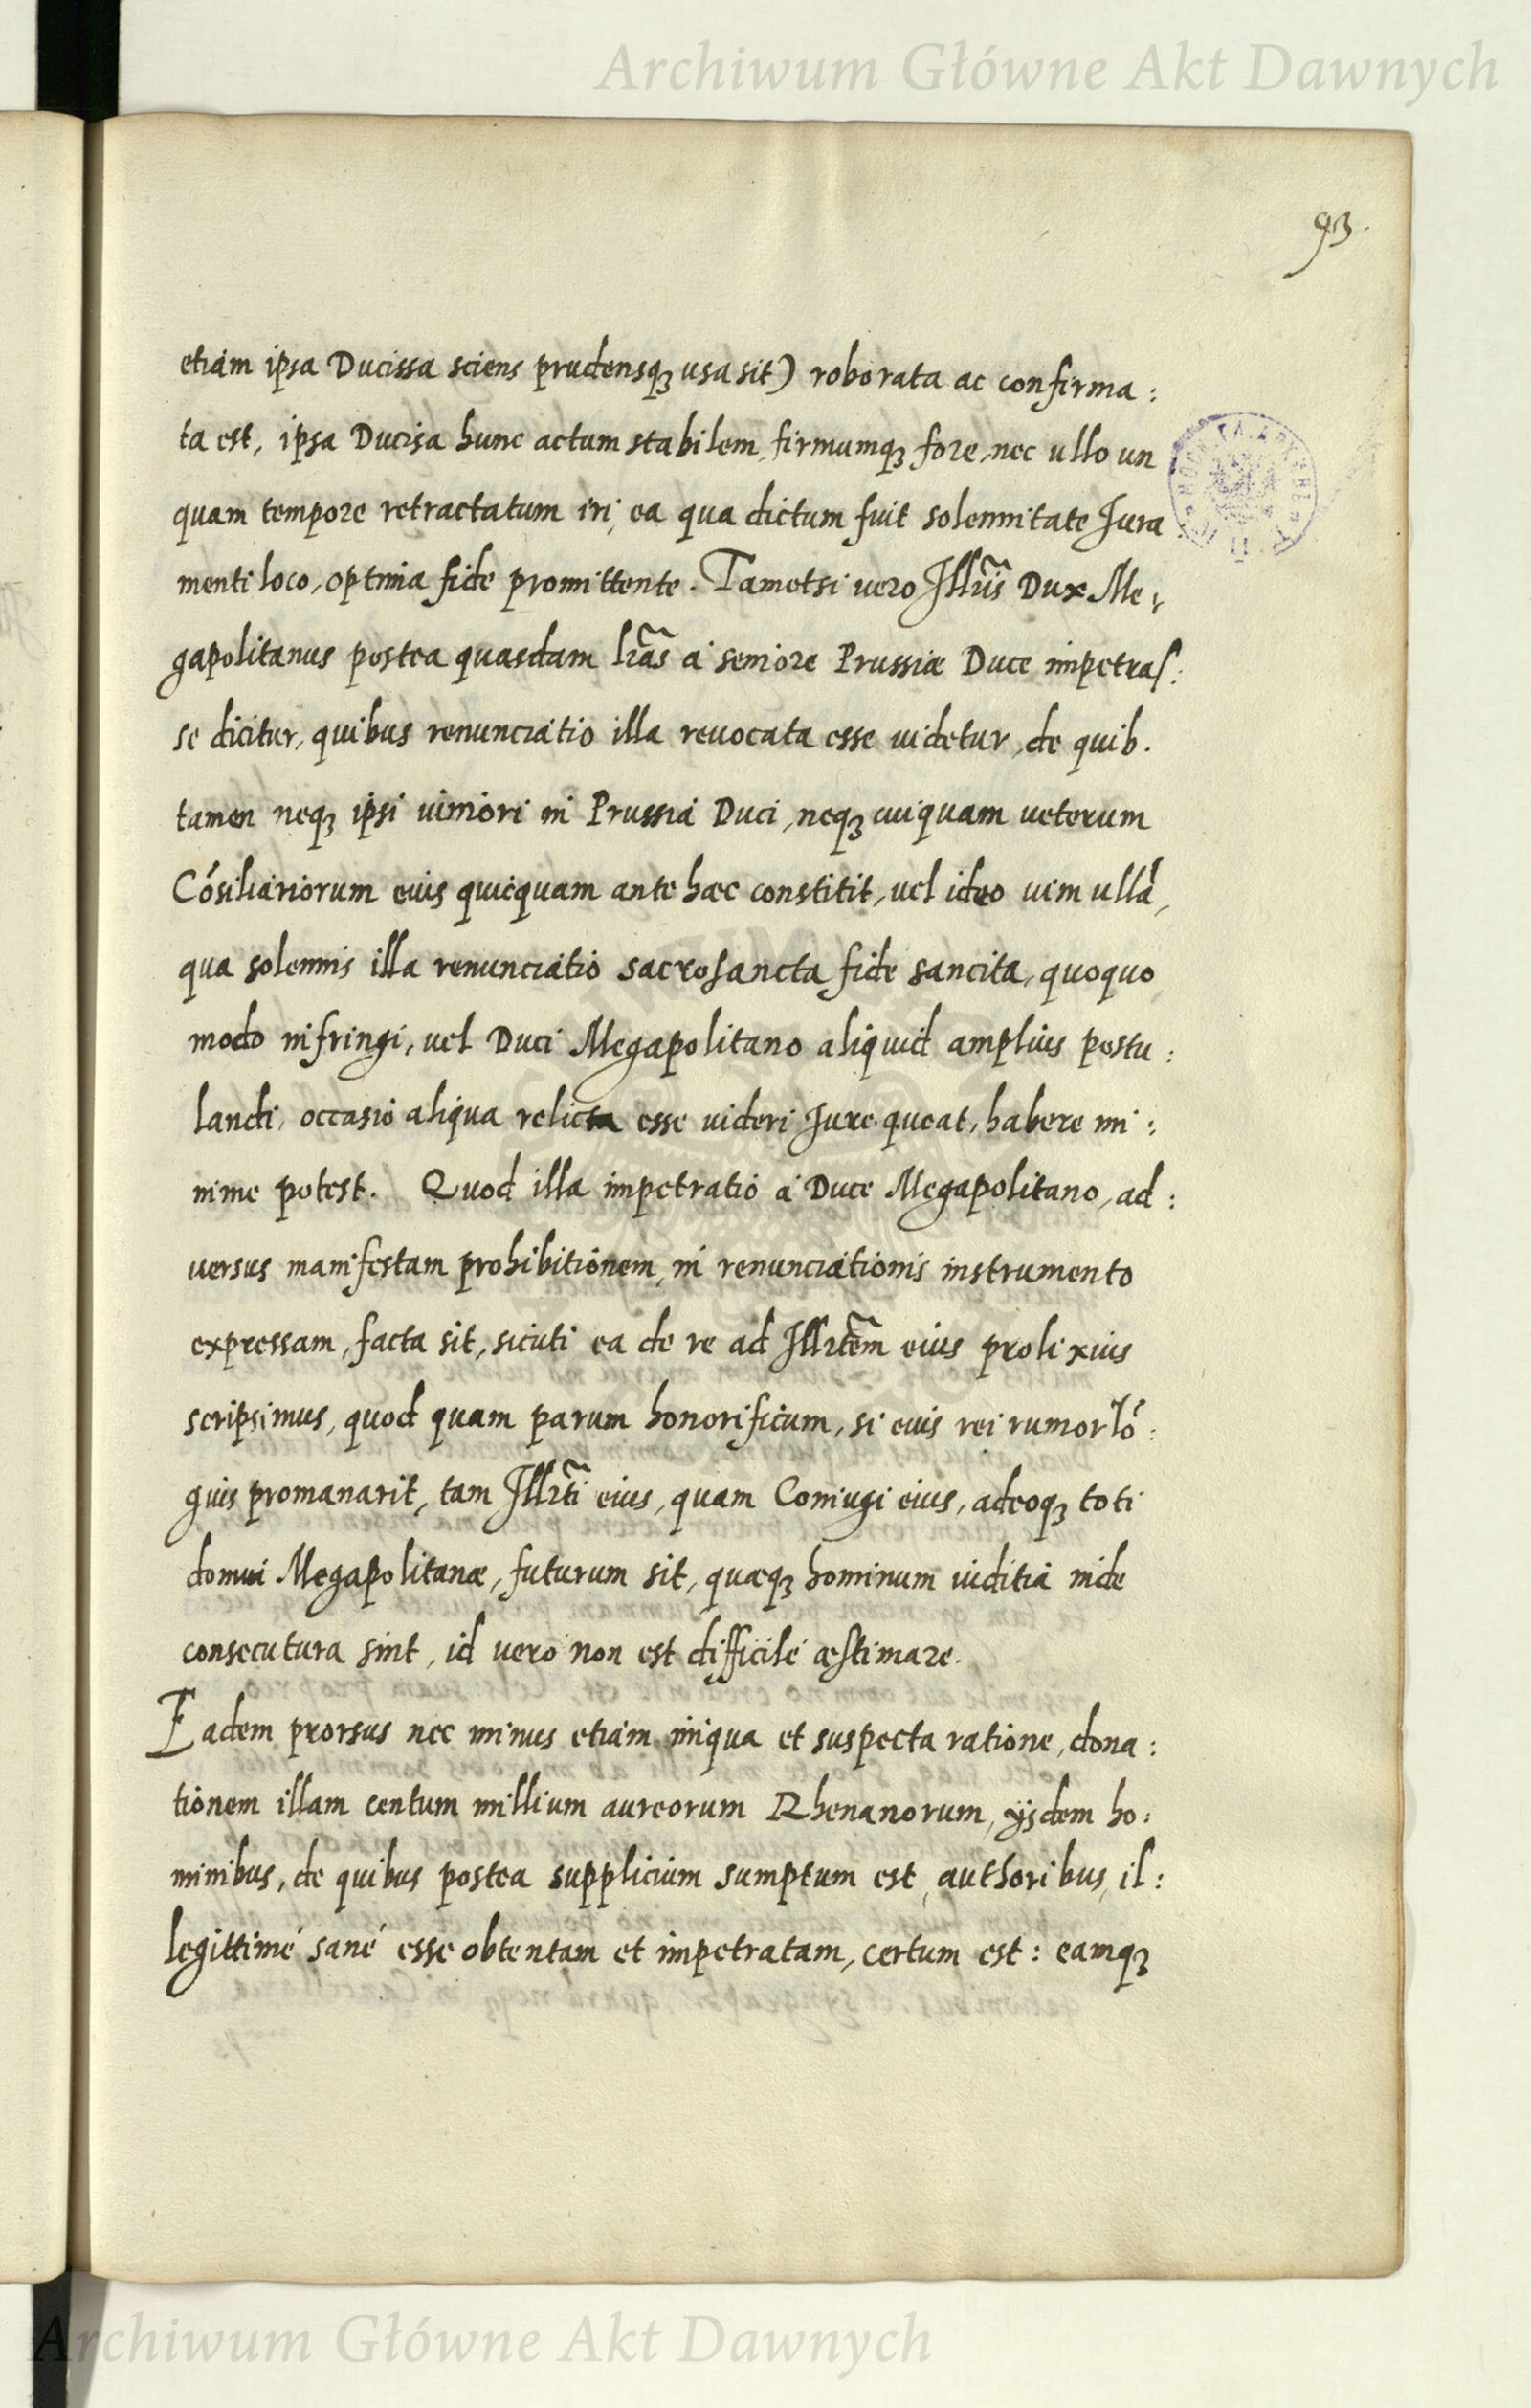 Archiwum Główne Akt Dawnych
93.
etiam ipsa Ducissa sciens prudensqꝫ usa sit) roborata ac confirma:
ta est, ipsa Ducisa hunc actum stabilem, firmumqꝫ fore, nec ullo un
quam tempore retractatum iri, ea qua dictum fuit solennitate Jura
menti loco, optima fide promittente. Tametsi vero Illm̃s Dux Me:
gapolitanus postea quasdam lr̃as à seniore Prussiæ Duce impetras:
se dicitur, quibus renunciatio illa reuocata esse uidetur, de quib.
tamen neqꝫ ipsi uiniori in Prussia Duci, neqꝫ cuiquam ueterum
Cósiliariorum euis quicquam ante hæc constitit, uel ideo uim ullá,
qua solennis illa renunciatio sacrosancta fide sancita, quoquo
modo infringi, uel Duci Megapolitano aliquid amplius postu:
landi, occasio aliqua relicta esse uideri Jure queat, habere mi:
nime potest. Quod illa impetratio à Duce Megapolitano, ad:
uersus manifestam prohibitionem, in renunciationis instrumento
expressam, facta sit, sicuti ea de re ad Illr̃tem eius prolixius
scripsimus, quod quam parum honorificum, si euis rei rumor ló:
guis promanarit, tam Illr̃ti eius, quam Coniugi eius, adeoqꝫ toti
domui Megapolitanæ, futurum sit, quæqꝫ hominum iuditia inde
consecutura sint, id uero non est difficile æstimare.
Eadem prorsus nec minus etiam iniqua et suspecta ratione, dona:
tionem illam centum millium aureorum Rhenanorum, ijsdem ho:
minibus, de quibus postea supplicium sumptum est, authoribus, il:
legittimé sané esse obtentam et impetratam, certum est: eamqꝫ
Archiwum Główne Akt Dawnych